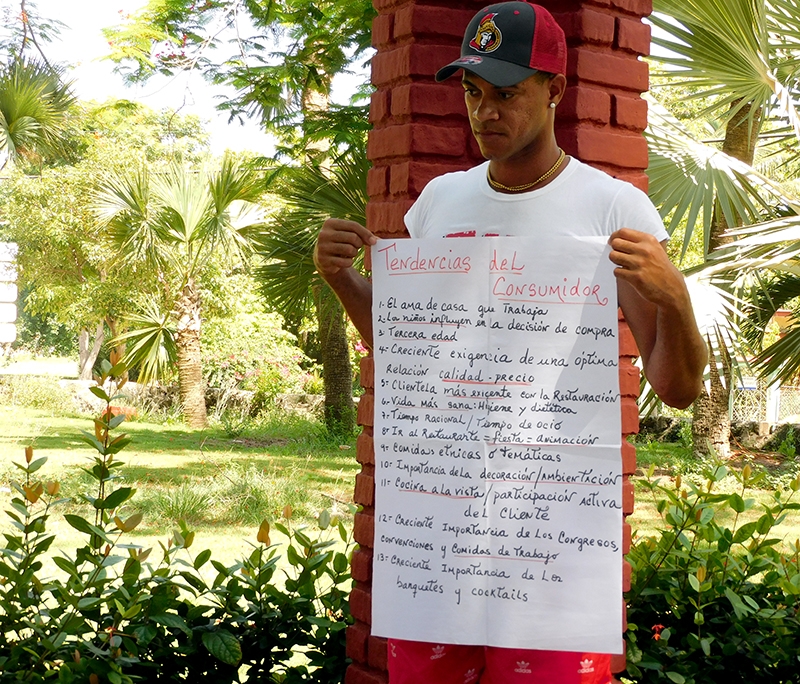 Tendencias del
Consumidor
1- El ama de casa que Trabaja
2- La niños influyen en la decisión de compra
3- Tercera edad
4- Creciente exigencia de una óptima
Relación calidad-precio
5- Clientela más exigente con la Restauración
6- Vida más sana: Higiene y dietética
7- Tiempo Racional / Tiempo de ocio
8- Ir al Restaurante = Fiesta = animación
9- Comidas etnicas o temáticas
10- Importancia de la decoración/ambientación
11- Cocina a la vista / participación activa
del Cliente
12- Creciente Importancia de Los Congresos,
convenciones y Comidas de Trabajo
13- Creciente Importancia de Los
banquetes y cocktails
adidas